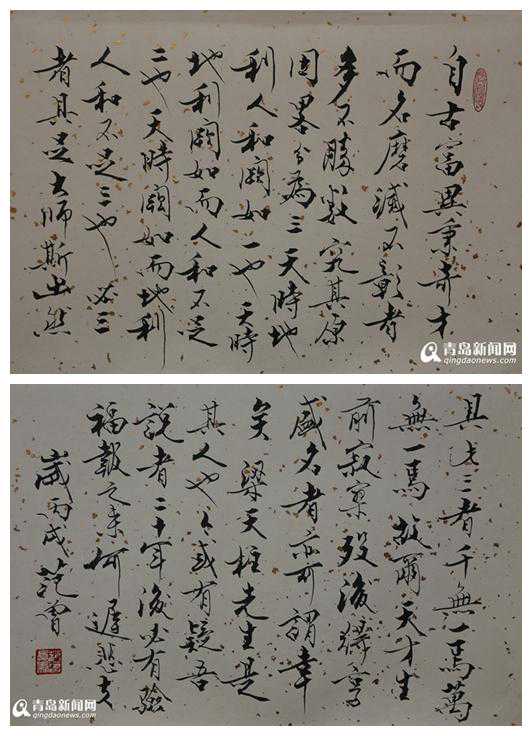 自古富異秉奇才
而名磨滅不彰者
多不勝數究其原
因畧分為三天時地
利人和闕如一也天時
地利闕如而人和不足
二也天時闕如而地利
人和不足三也必三
者具足大師斯出然
青岛新闻网
qingdaonews.com
具此三者千無一焉萬
無一焉故爾天才生
前寂寞歿後鑄為
盛名者亦可謂幸
矣梁天柱先生是
其人也人或有疑吾
說者二十年後必有驗
福報之来何遲悲夫
歲丙戌范曾
青岛新闻网
qingdaonews.com